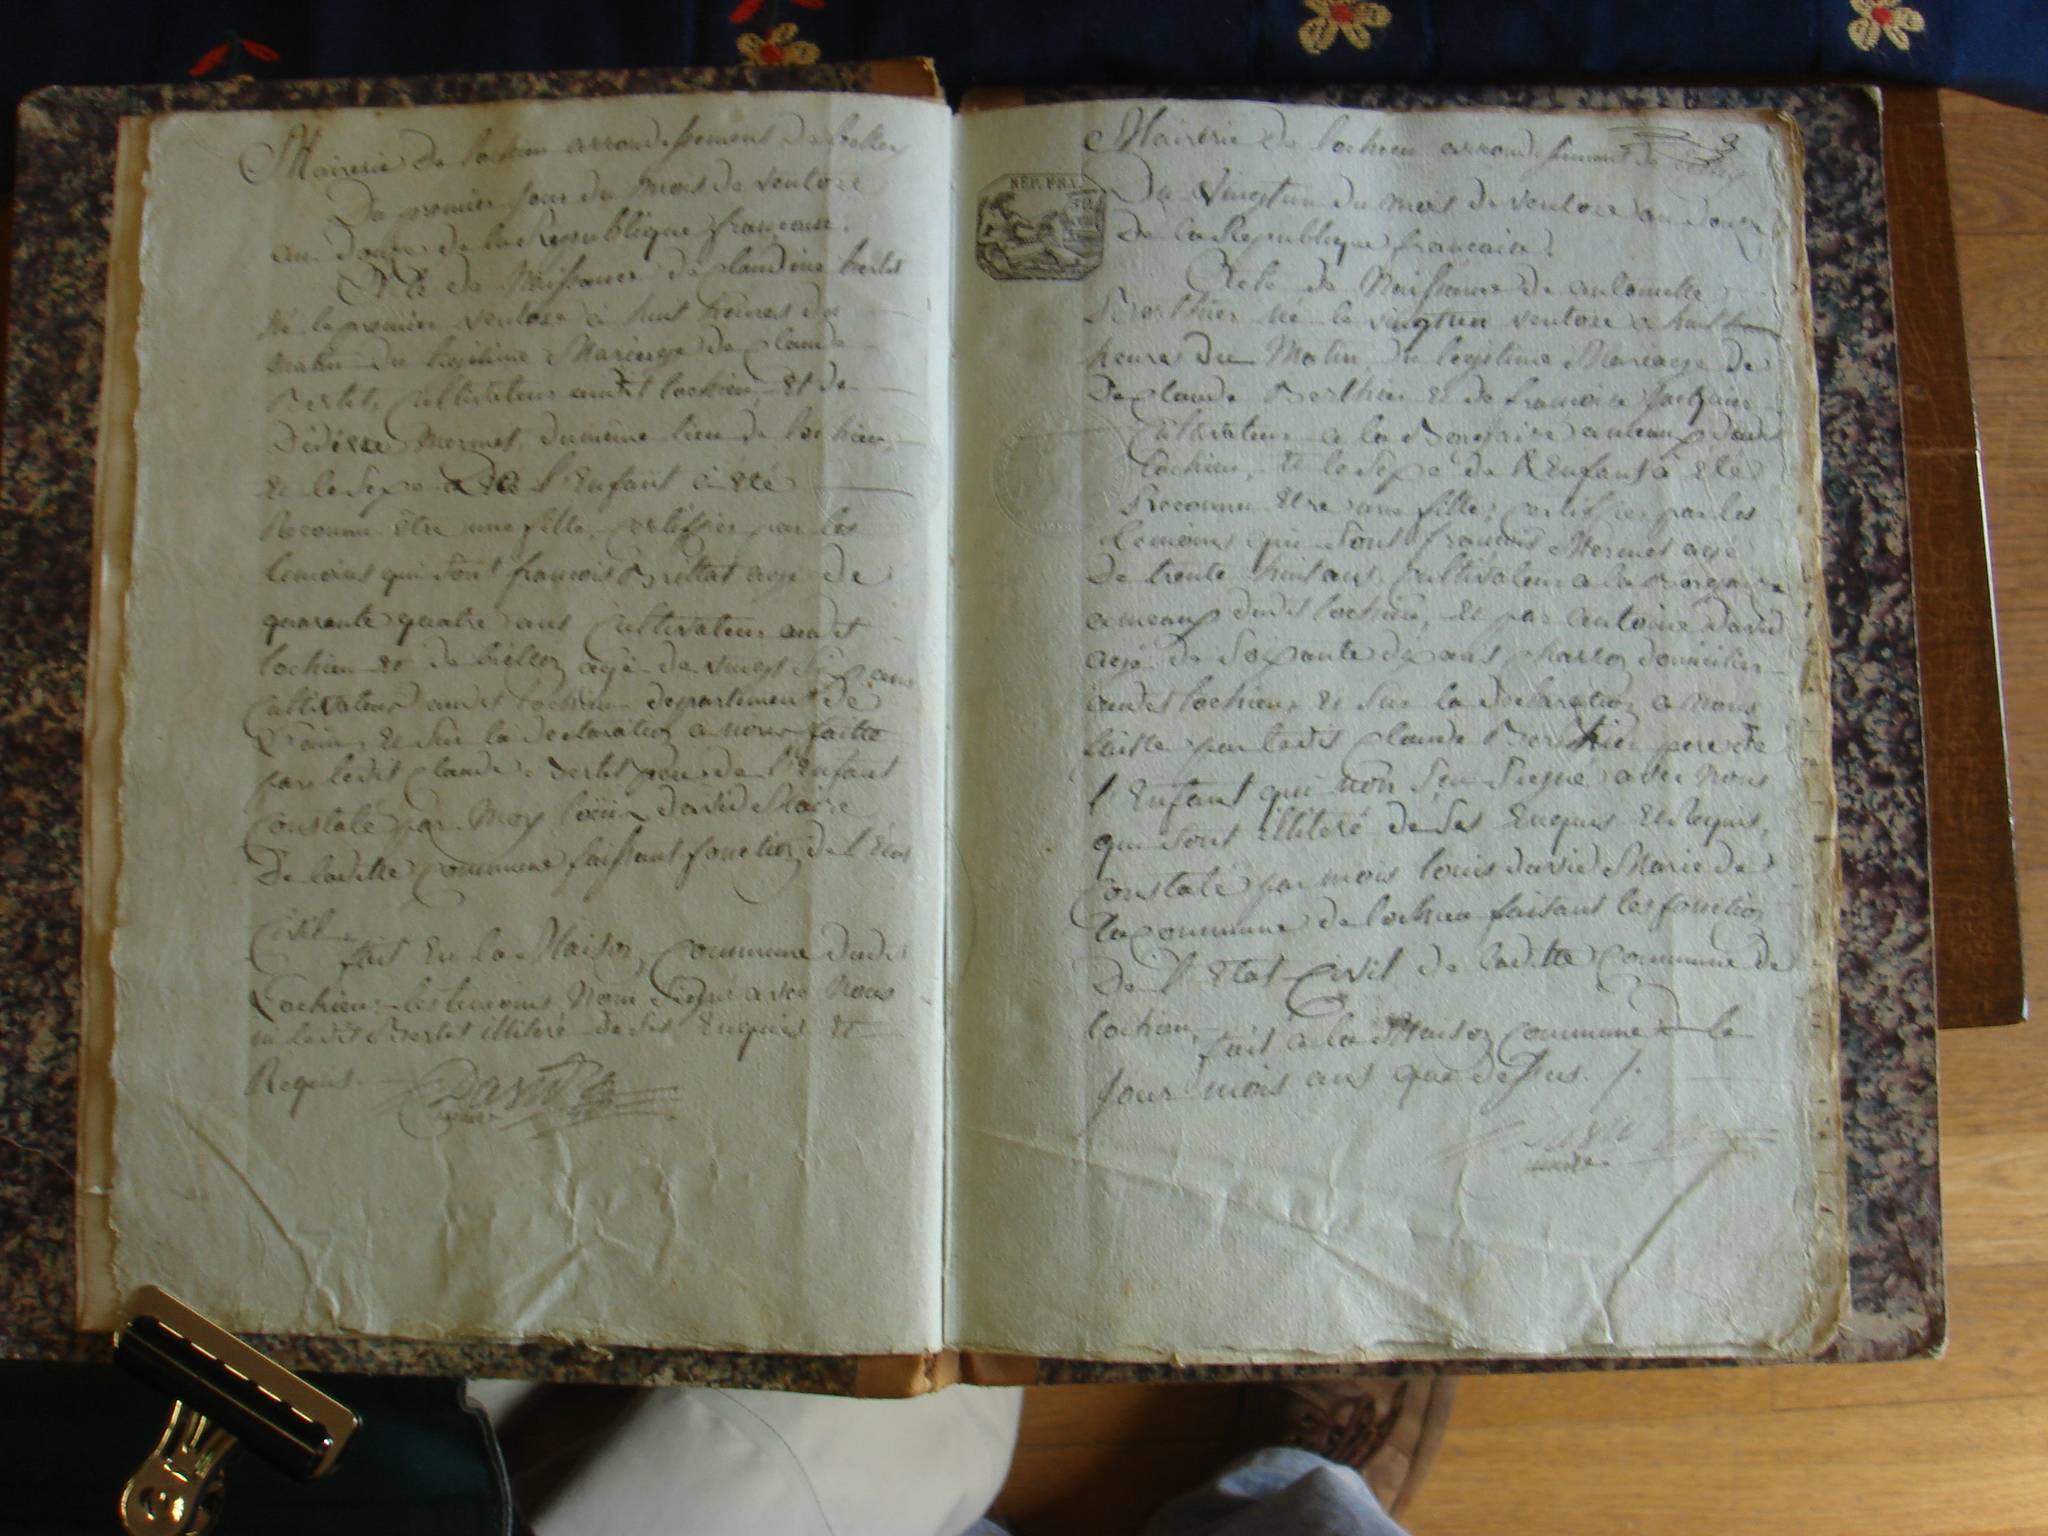 Mairerie de lochieu arrondissement de belley
Du premier jour du mois de ventose
an douze de la Republique francaise.
Acte de Naissance de claudine bertet
né le premier ventose a huit heures du
matin du legitime Mariage de claude
Bertet, Cultivateur audit lochieu, et de
Mermet, du meme lieu de lochieu,
et le sexe de l'Enfant a été
Reconnu être une fille, certiffier par les
temoins qui sont francois Brittat agé de
quarante quatre ans Cultivateur audit
lochieu et de agé de vingt six ans
Cultivateur audit lochieu departement de
l'ain, et sur la declaration a nous faitte
par ledit Claude Bertet pere de l'Enfant
Constaté par Moy loüis david Maire
De laditte Commune faissant fonction de l'État
Civil.
fait en la Maison Commune dudit
Lochieu, les temoins Nom Signé avec Nous
ni ledit Bertet illiteré de ses Enquis et
Requis.
David
maire
Mairerie de lochieu arrondissement de belley
REP. FRA.
Du Vingtun du mois de ventose an douze
De la Republique francaise.
Acte de Naissance de antoinette
Berthier né le vingtun ventose a huit
heures du Matin, du legitime Mariage de
De claude Berthier et de francoise
Cultivateur a la ameau dudit
lochieu, et le sexe de l'Enfant a été
Reconnu Etre une fille, certiffier par les
temoins qui sont francois Mermet agé
De trente huit ans, Cultivateur a la
ameau dudit lochieu, et par antoine david
agé de soixante dix ans domicilier
audit lochieu, et sur la declaration a nous
faitte par ledit claude Berthier pere de
l'Enfant qui non seu Signé avec Nous
qui sont illiteré de ses Enquis et requis,
Constaté par mois louis david Marie de
la commune de lochieu faisant les fonction
De l'Etat Civil de laditte Commune de
lochieu, fait a la Maison commune le
Jour mois ans que dessus.
maire